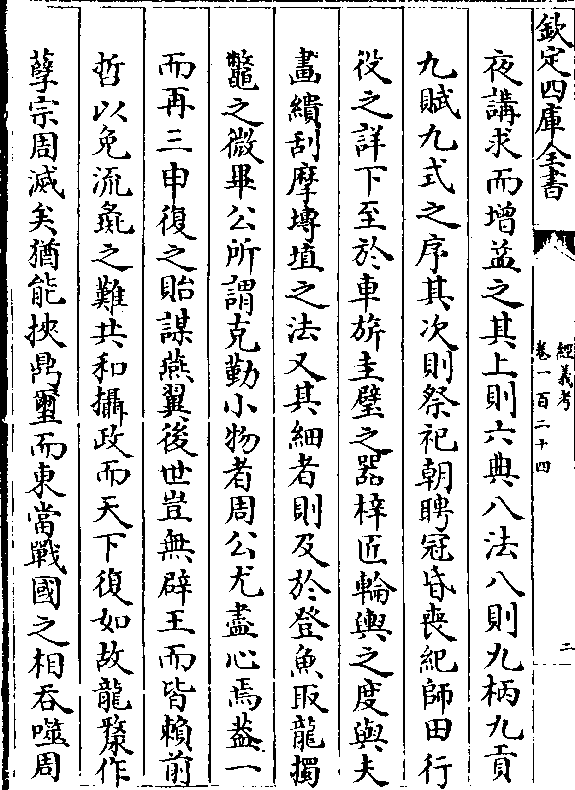 欽定四庫全書
經義考
卷一百二十四
二
夜講求而增益之其上則六典八法八則九柄九貢
九賦九式之序其次則祭祀朝聘冠昏喪紀師田行
役之詳下至於車旂圭璧之器梓匠輪輿之度與夫
畫繢刮摩摶埴之法又其細者則及於登魚取龍擉
鼈之微畢公所謂克勤小物者周公尤盡心焉葢一
而再三申復之貽謀燕翼後世豈無辟王而皆賴前
哲以免流彘之難共和攝政而天下復如故龍漦作
孽宗周滅矣猶能挾鼎璽而東當戰國之相吞噬周